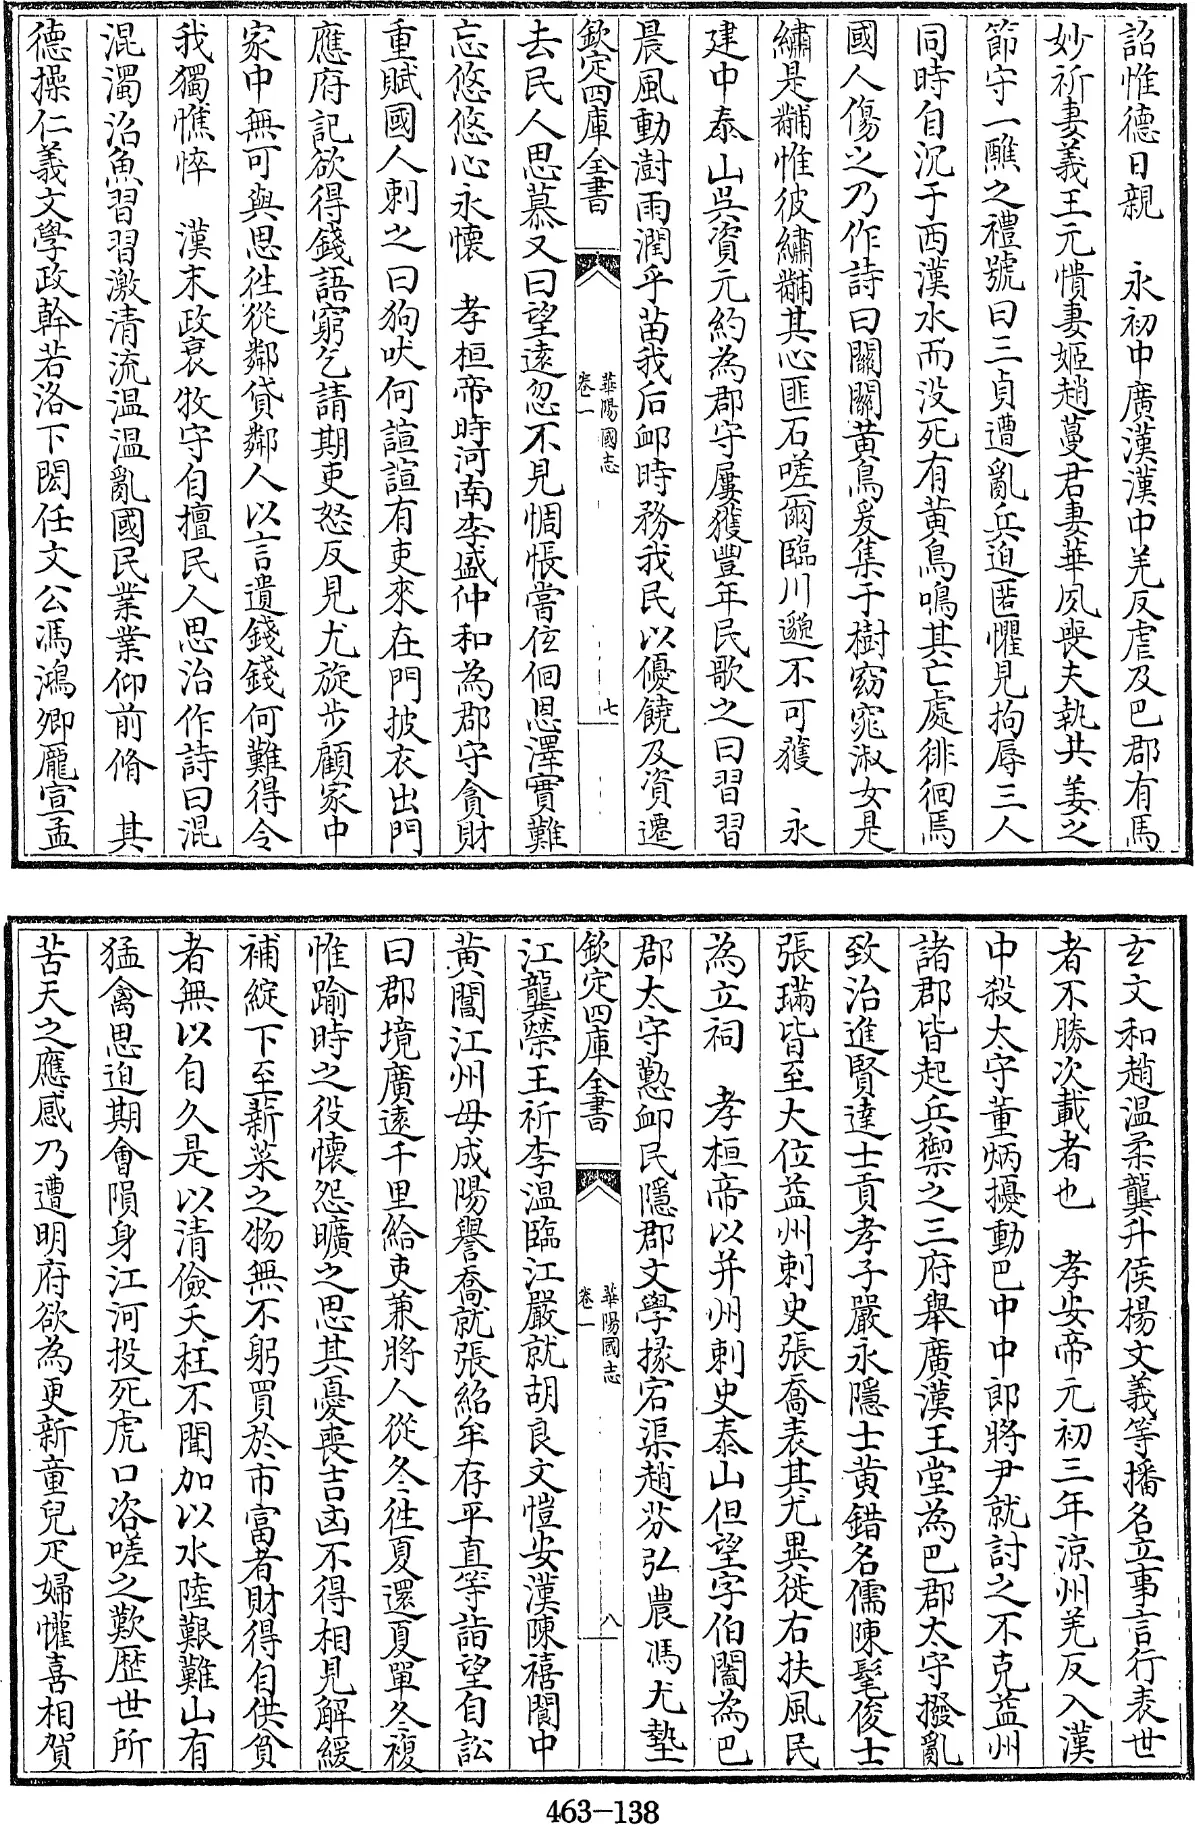 詔惟德日親　永初中廣漢漢中羌反虐及巴郡有馬
妙祈妻義王元憒妻姬趙蔓君妻華夙喪夫執共姜之
節守一醮之禮號曰三貞遭亂兵迫匿懼見拘辱三人
同時自沉于西漢水而沒死有黃鳥鳴其亡處徘徊焉
國人傷之乃作詩曰關關黃鳥爰集于樹窈窕淑女是
繡是黼惟彼繡黼其心匪石嗟爾臨川邈不可獲　永
建中泰山吳資元約為郡守屢獲豐年民歌之曰習習
晨風動澍雨潤乎苗我后卹時務我民以優饒及資遷
欽定四庫全書
華陽國志
卷一
七
去民人思慕又曰望遠忽不見惆悵嘗俳佪恩澤實難
忘悠悠心永懷　孝桓帝時河南李盛仲和為郡守貪財
重賦國人刺之曰狗吠何諠諠有吏來在門披衣出門
應府記欲得錢語窮乞請期吏怒反見尤旋步顧家中
家中無可與思往從鄰貸鄰人以言遺錢錢何難得令
我獨憔悴　漢末政衰牧守自擅民人思治作詩曰混
混濁沼魚習習激清流温温亂國民業業仰前脩　其
德操仁義文學政幹若洛下閎任文公馮鴻卿龐宣孟
玄文和趙温柔龔升侯楊文義等播名立事言行表世
者不勝次載者也　孝安帝元初三年涼州羌反入漢
中殺太守董炳擾動巴中中郎將尹就討之不克益州
諸郡皆起兵禦之三府舉廣漢王堂為巴郡太守撥亂
致治進賢達士貢孝子嚴永隱士黃錯名儒陳髦俊士
張璊皆至大位益州刺史張喬表其尤異徙右扶風民
為立祠　孝桓帝以并州刺史泰山但望字伯闔為巴
郡太守懃卹民隱郡文學掾宕渠趙芬弘農馮尤墊
欽定四庫全書
華陽國志
卷一
八
江龔榮王祈李温臨江嚴就胡良文愷安漢陳禧閬中
黃閶江州毋成陽譽喬就張紹牟存平直等詣望自訟
曰郡境廣遠千里給吏兼將人從冬往夏還夏單冬複
惟踰時之役懷怨曠之思其憂喪吉凶不得相見解緩
補綻下至薪菜之物無不躬買於市富者財得自供貧
者無以自久是以清儉夭枉不聞加以水陸艱難山有
猛禽思迫期會隕身江河投死虎口咨嗟之歎歴世所
苦天之應感乃遭明府欲為更新童兒疋婦懽喜相賀
463-138